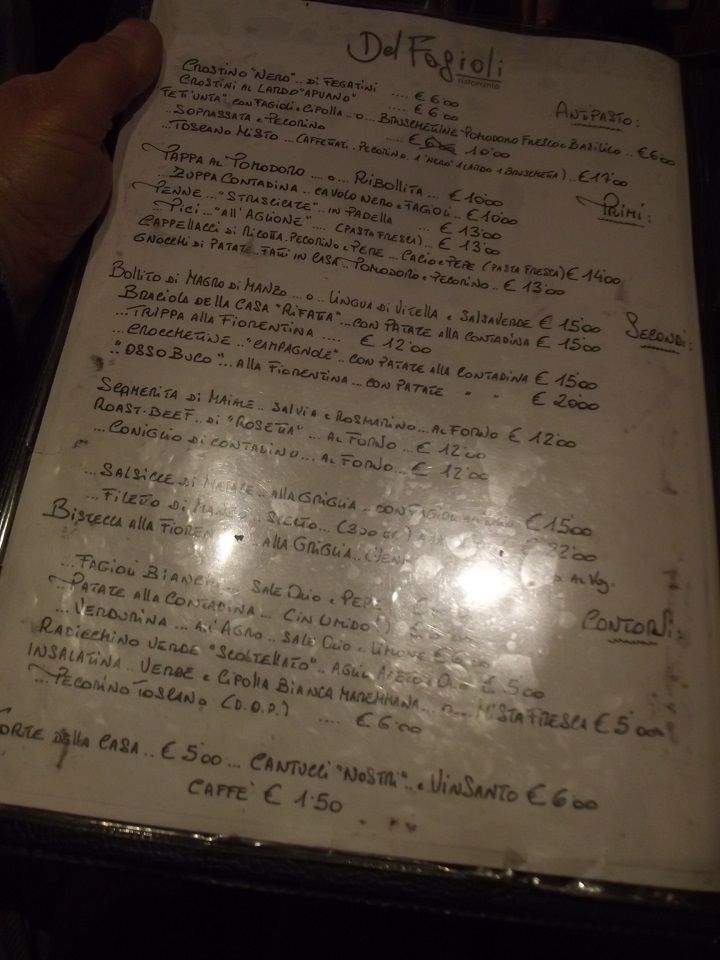 Del Fagioli
ristorante
CROSTINO "NERO".. DI FEGATINI .... € 6'00
CROSTINI AL LARDO "APUANO" .... € 6'00
ANTIPASTO:
FETT'UNTA" CON FAGIOLI e CIPOLLA .. o... BRUSCHETTINE POMODORO FRESCO e BASILICO .. € 6'00
..SOPRASSATA e PECORINO .... 10'00
..TOSCANO MISTO ... PECORINO ... € 17'00
PRIMI:
PAPPA AL POMODORO .... o... RIBOLLITA ... € 10'00
...ZUPPA CONTADINA .. CAVOLO NERO e FAGIOLI .. € 10'00
PENNE ..."STRASCICATE" .. IN PADELLA ... € 13'00
...PICI .. "ALL'AGLIONE" .... (PASTA FRESCA) ... € 13'00
CAPPELLACCI DI RICOTTA. PECORINO e PEPE ... CACIO e PEPE (PASTA FRESCA) € 14'00
GNOCCHI DI PATATE. FATTI IN CASA.. POMODORO e PECORINO .. € 13'00
SECONDI:
BOLLITO DI MAGRO DI MANZO ... o.. LINGUA DI VITELLA e SALSAVERDE € 15'00
BRACIOLA DELLA CASA "RIFATTA" ...CON PATATE ALLA CONTADINA € 15'00
...TRIPPA ALLA FIORENTINA .... € 12'00
...CROCCHETTINE .."CAMPAGNOLE".. CON PATATE ALLA CONTADINA € 15'00
.."OSSOBUCO"...ALLA FIORENTINA ... CON PATATE " " € 20'00
SCAMERITA DI MAIALE .. SALVIA e ROSMARINO... AL FORNO € 12'00
ROAST-BEEF.. DI "ROSETTA" ... AL FORNO ... € 12'00
...CONIGLIO DI CONTADINO ... AL FORNO... € 12'00
...SALSICCE DI MAIALE .. ALLA GRIGLIA .. CON FAGIOLI € 15'00
...FILETTO DI MANZO .. SCELTO... (300 gr.) 22'00
BISTECCA ALLA .. ALLA GRIGLIA
CONTORNI:
...FAGIOLI BIANCHI .. SALE OLIO e PEPE
PATATE ALLA CONTADINA ... (IN UMIDO!)
...VERDURINA ... ALL'AGRO.. SALE OLIO e LIMONE €
RADICCHINO VERDE "SCOLTELLATO".. AGLIO ACETO e OLIO € 5'00
INSALATINA .. VERDE e CIPOLLA BIANCA MAREMMANA... o.... MISTA FRESCA € 5'00
...PECORINO TOSCANO (D.O.P.) .... € 6'00
TORTE DELLA CASA .. € 5'00 ... CANTUCCI "NOSTRI" .. e VINSANTO € 6'00
CAFFE' € 1'50